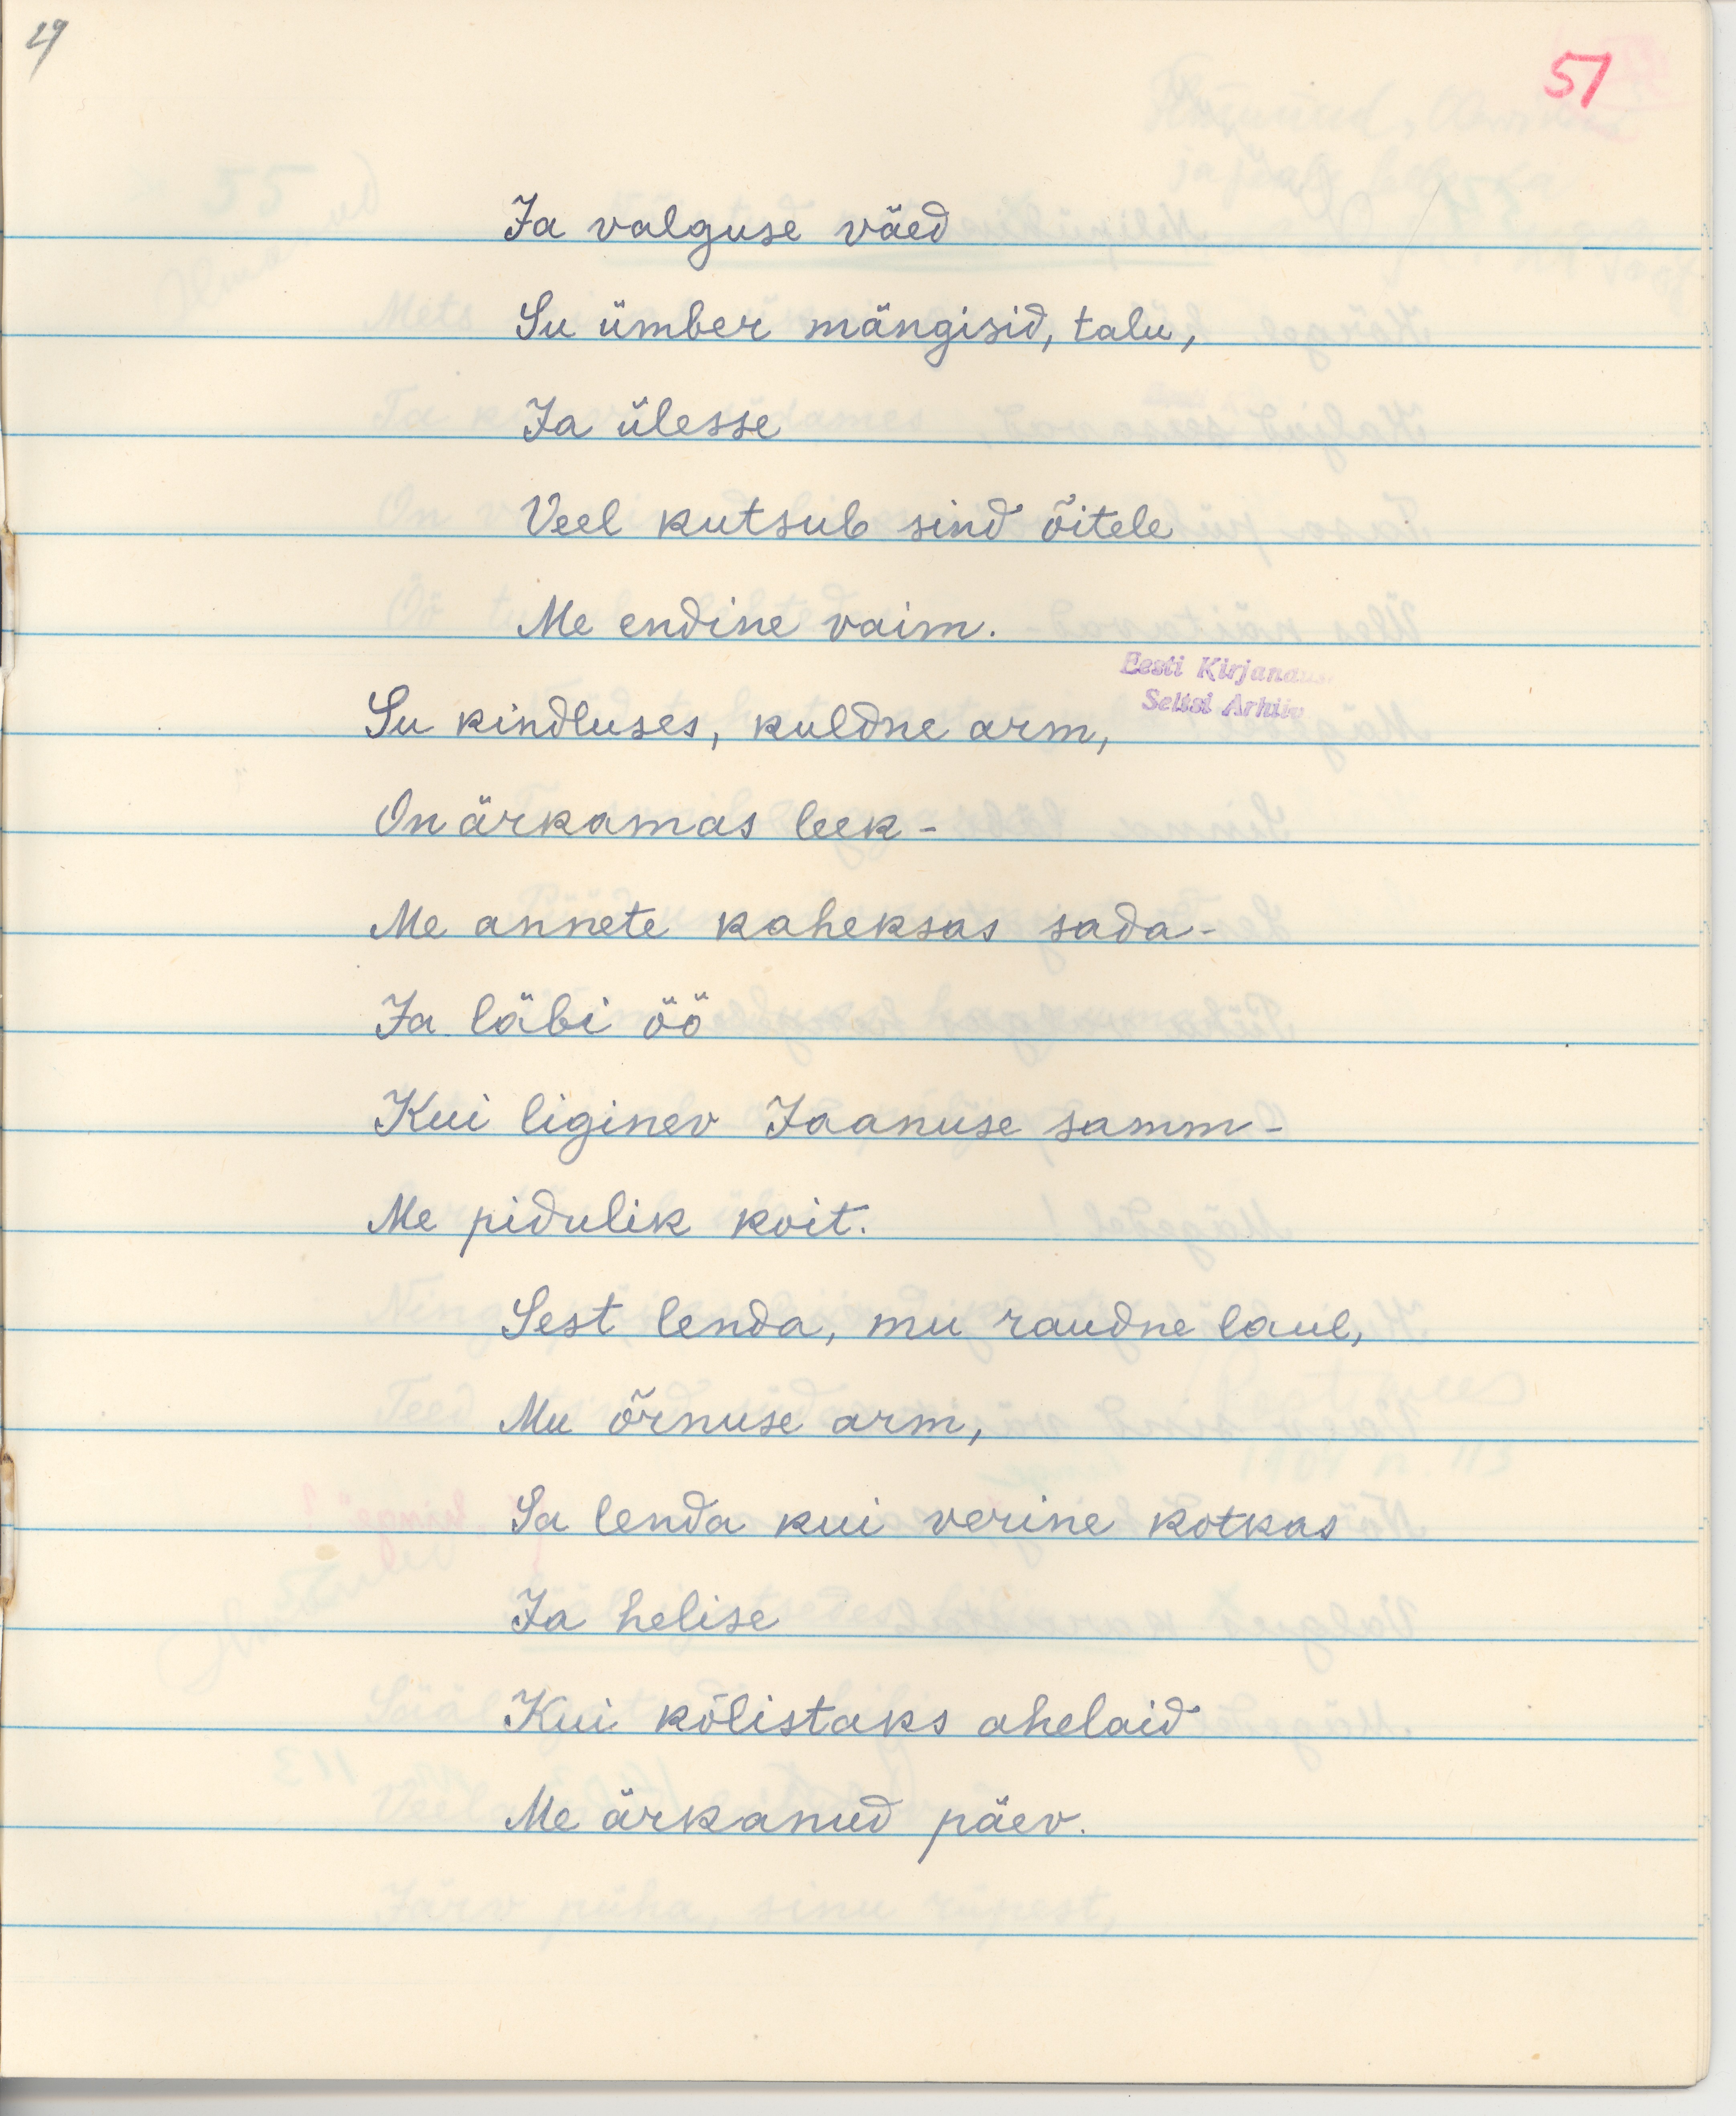 29
51
Ja valguse väed
Su ümber mängisid, talu,
Ja ülesse
Veel kutsub sind õitele
Me endine vaim.
Eesti Kirjandus
Seltsi Arhiiv
Su kindluses, kuldne arm,
On ärkamas leek -
Me annete kaheksas sada -
Ja läbi öö
Kui liginev Jaanuse samm -
Me pidulik koit.
Sest lenda, mu raudne laul,
Mu õrnuse arm,
Sa lenda kui verine kotkas
Ja helise
Kui kõlistaks ahelaid
Me ärkanud päev.